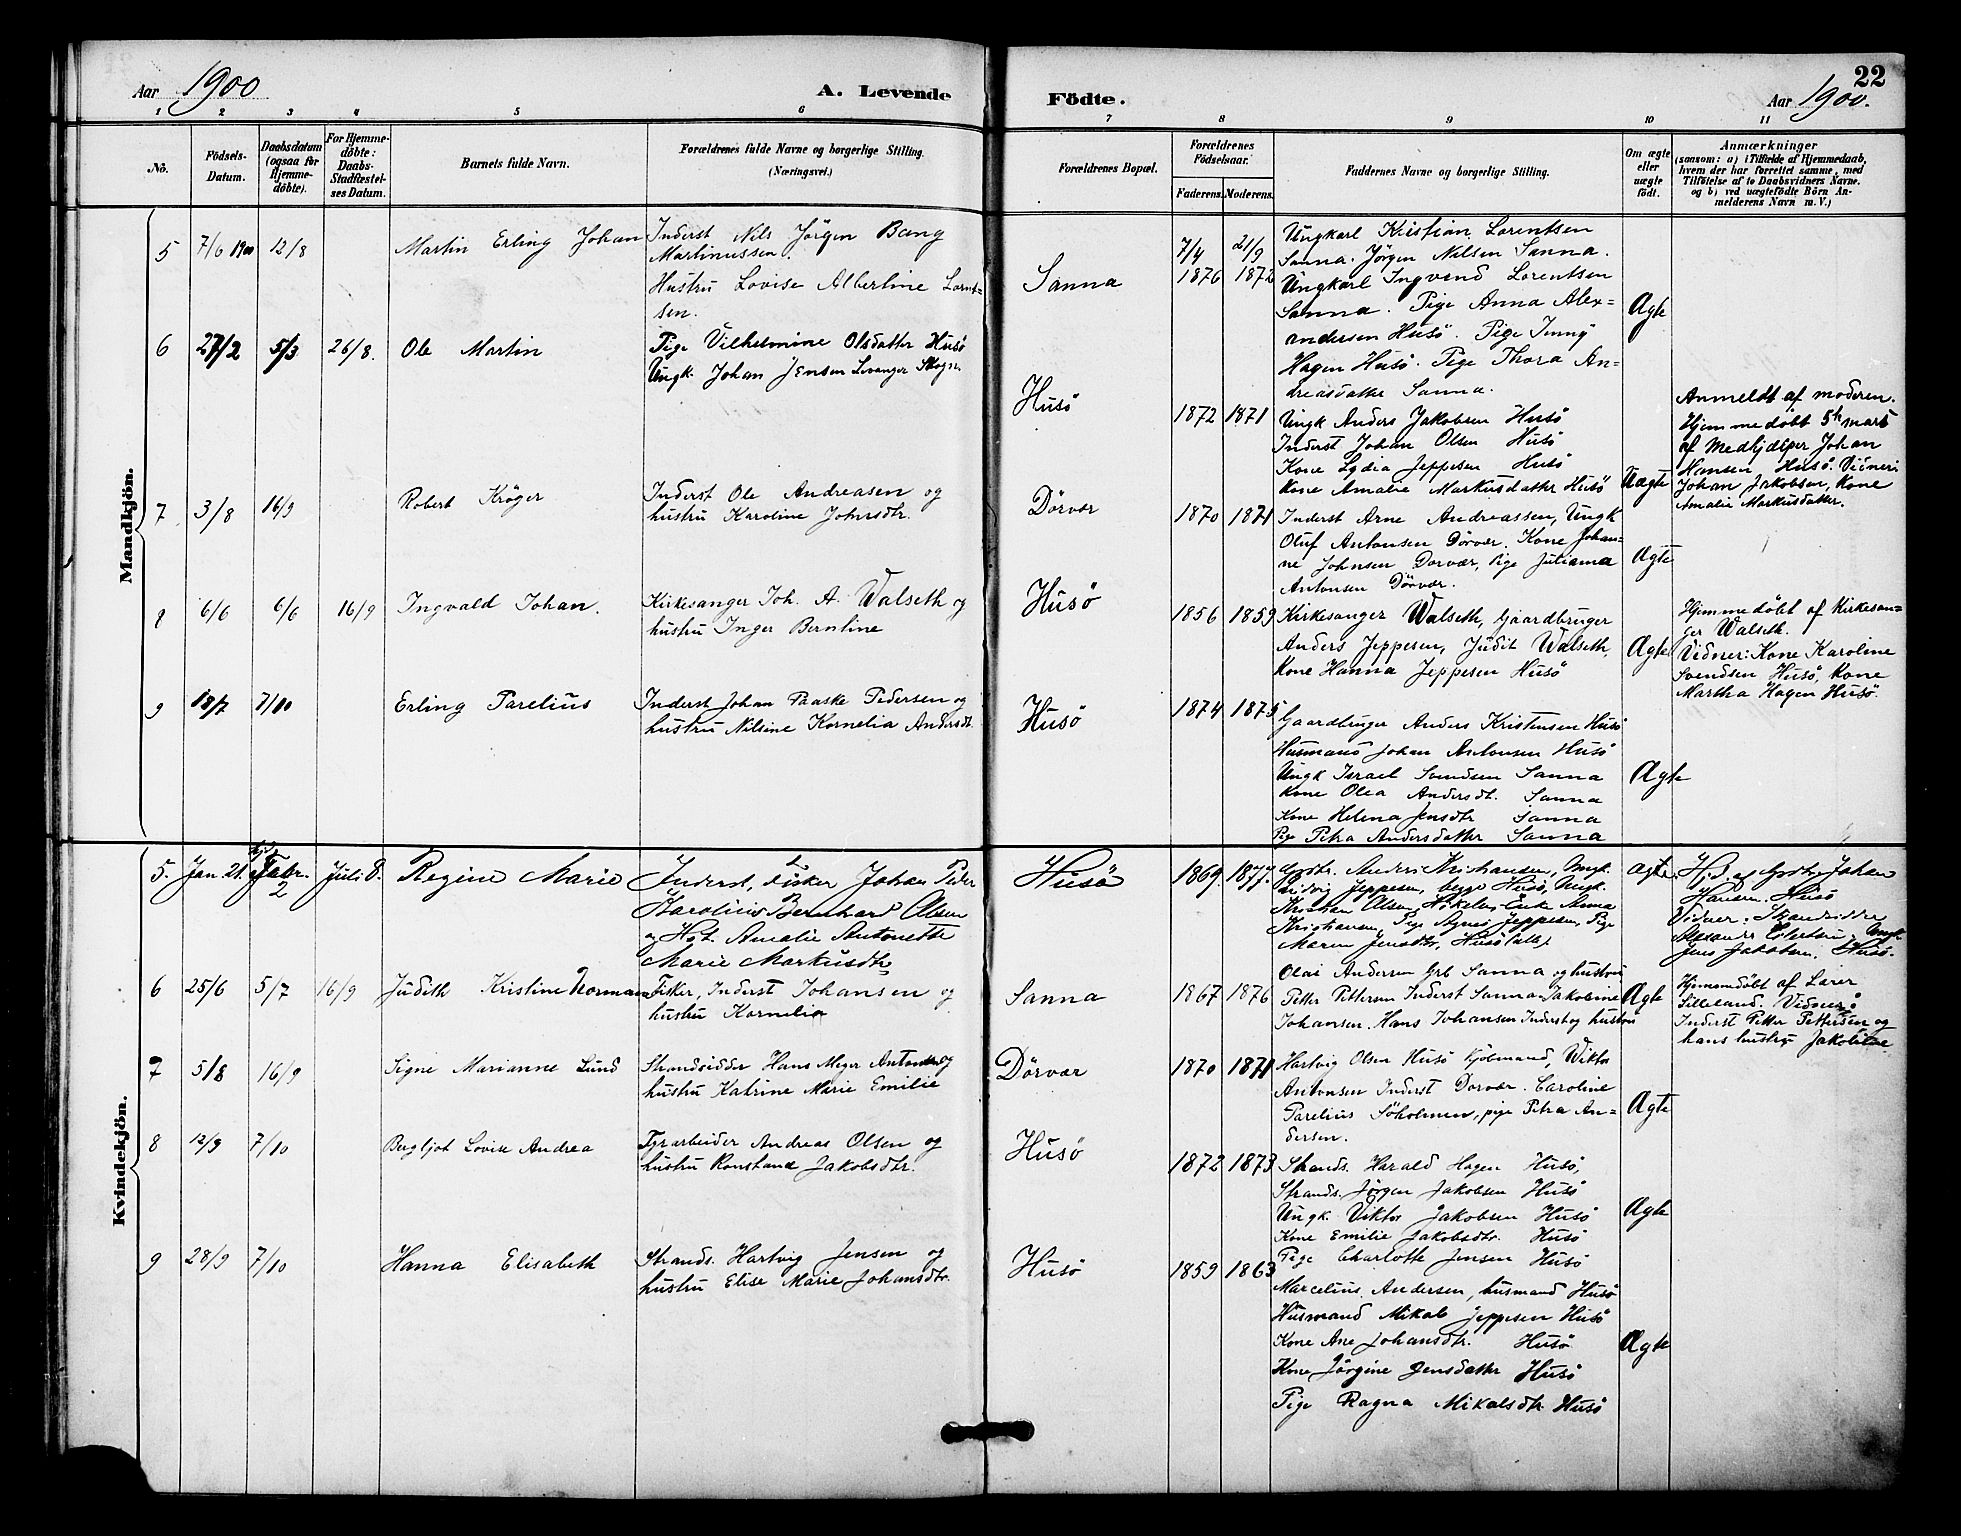 Aar 1900 A. Levende
1 2 3 4 5 6
No.
Födsels-Datum.
Daabsdatum (ogsaa for Hjemme-döbte).
For Hjemme-döbte: Daabs-Stadfæstel-ses Datum.
Barnets fulde Navn.
Forældrenes fulde Navne og borgerlige Stilling.
(Næringsvei.)
Mandkjön.
5 7/6 1900 12/8 Martin Erling Johan Inderst Nils Jörgen Bang
Martinussen.
Hustru Lovise Albertine Lornt=
sen.
6 27/2 5/3 26/8. Ole Martin Pige Vilhelmine Olsdatter Husö
Ungk. Johan Jensen Levanger Skogn.
7 3/8 16/9 Robert Kröger Inderst Ole Andreasen og
hustru Karoline Johnsdtr.
8 6/6 6/6 16/9 Ingvald Johan. Kirkesanger Joh. A. Walseth og
hustru Inger Berntine
9 18/7 7/10 Erling Parelius Inderst Johan Paaske Pedersen og
hustru Nilsine Kornelia Andersdt.
Kvindekjön.
5. Jan 21. Febr. 2 Juli 8. Regine Marie Inderst, Fisker Johan Peder
Karolius Bernhard Olsen
og Hst. Amalie Antonette
Marie Markusdtr
6 25/6 5/7 16/9 Judith Kristine Normann Fisker, Inderst Johansen og
hustru Kornelia
7 5/8 16/9 Signe Marianne Lund Strandsidder Hans Meyer Antonsen og
hustru Katrine Marie Emilie
8 12/9 7/10 Bergljot Lovise Andrea Fyrarbeider Andreas Olsen og
hustru Konstanse Jakobsdtr.
9 28/9 7/10 Hanna Elisabeth Strands. Hartvig Jensen og
hustru Elise Marie Johansdtr.
22
Födte. Aar 1900.
7 8 9 10 11
Forældrenes Bopæl.
Forældrenes Födselsaar.
Faderens. Moderens.
Faddernes Navne og borgerlige Stilling.
Om ægte eller uægte födt.
Anmærkninger
(saasom: a) i Tilfælde af Hjemmedaab,
hvem der har forrettet samme, med
Tilföielse af to Daabsvidners Navne.
og b) ved uægtefödte Börn An-
melderens Navn m. V.)
Sanna 7/4 1876 21/9 1872 Ægte
Ungkarl Kristian Lorentsen
Sanna. Jörgen Nilsen Sanna.
Ungkarl Ingvend Lorentsen
Sanna. Pige Anna Alex=
andersen Husö. Pige Jenny
Hagen Husö. Pige Thora An=
dreasdatter Sanna.
Husö 1872 1871 Uægte
Ungk Anders Jakobsen Husö
Inderst Johan Olsen Husö
Kone Lydia Jeppesen Husö
Kone Amalie Markusdatter Husö
Anmeldt af moderen.
Hjemmedöbt 5te mars
af Medhjælper Johan
Hansen, Husö. Vidner:
Johan Jakobsen, Kone
Amalie Markusdatter.
Dörvær 1870 1871 Ægte
Inderst Arne Andreassen, Ungk
Oluf Antonsen Dörvær. Kone Johan=
ne Johnsen Dorvær, Pige Julianna
Antonsen Dörvær.
Husö 1856 1859 Ægte
Kirkesanger Walseth, Gaardbruger
Anders Jeppesen, Judit Walseth,
Kone Hanna Jeppesen Husö
Hjemmedöbt af Kirkesan=
ger Walseth.
Vidner: Kone Karoline
Svendsen Husö, Kone
Martha Hagen Husö.
Husö 1874 1875 Ægte
Gaardbruger Anders Kristensen Husö
Husmand Johan Antonsen Husö
Ungk Israel Svendsen Sanna
Kone Olea Andersdt. Sanna
Kone Helena Jensdtr Sanna
Pige Petra Andersdatter Sanna
Husö 1869. 1877. ægte.
Gbrdr. Anders Kristiansen, Ungk.
Ludvig Jeppesen, begge Husö, Ungk.
Kristian Olsen, Enke Anna
Kristiansen, Pige Agnes Jeppesen, Pige
Maren Jensdtr, Husö (alle).
Hj.d. af Johan
Hansen, Husö
Vidner: Strandsidder
Alexander Eilertsen, Ungk.
Jens Jakobsen, Husö.
Sanna 1867 1876 Ægte
Olai Andersen Grb Sanna og hustru
Petter Pettersen Inderst Sanna Jakobine
Johansen. Hans Johansen Inderst og hustru
Hjemmedöbt af Lærer
Silleland. Vidner:
Inderst Petter Pettersen og
hans hustru Jakobine
Dörvær 1870 1871 Ægte
Hartvig Olsen Husö Kjöbmand, Wiktor
Antonsen Inderst Dorvær. Caroline
Parelius Söholmen, pige Petra An=
dersen.
Husö 1872 1873 Ægte
Strands. Harald Hagen Husö,
Strands. Jörgen Jakobsen Husö
Ungk. Viktor Jakobsen Husö
Kone Emilie Jakobsdtr. Husö
Pige Charlotte Jensen Husö
Husö 1859 1863 Ægte
Marcelius Andersen, husmand Husö
Husmand Mikal Jeppesen Husö
Kone Ane Johansdtr. Husö
Kone Jörgine Jensdatter Husö
Pige Ragna Mikalsdtr Husö